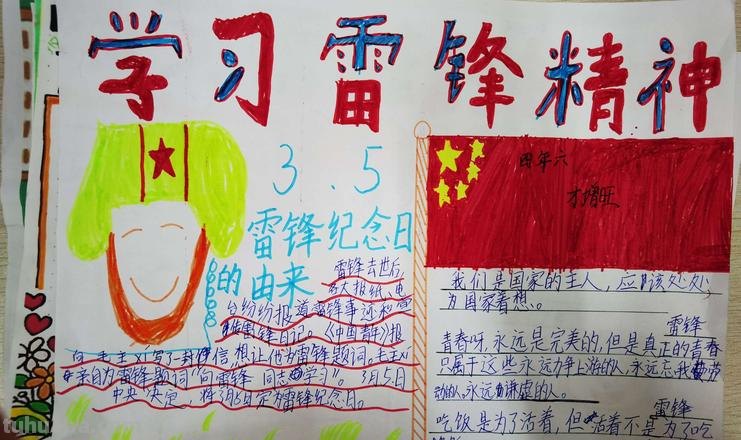 学习雷锋精神
3.5
雷锋纪念日
的由来
雷锋去世后,
各大报纸、电
台纷纷报道雷锋事迹和
雷锋日记。《中国青年》报
向毛主席写了一封信想让他为雷锋题词。毛主席
亲自为雷锋题词"向雷锋同志学习"。3月5日
中央决定,将3月5日定为雷锋纪念日。
四年六
我们是国家的主人,应该处处
为国家着想。
雷锋
青春呀,永远是完美的,但是真正的青春
只属于这些永远力争上游的人,永远忘我劳
动的人,永远谦虚的人。
雷锋
吃饭是为了活着,但活着不是为了吃